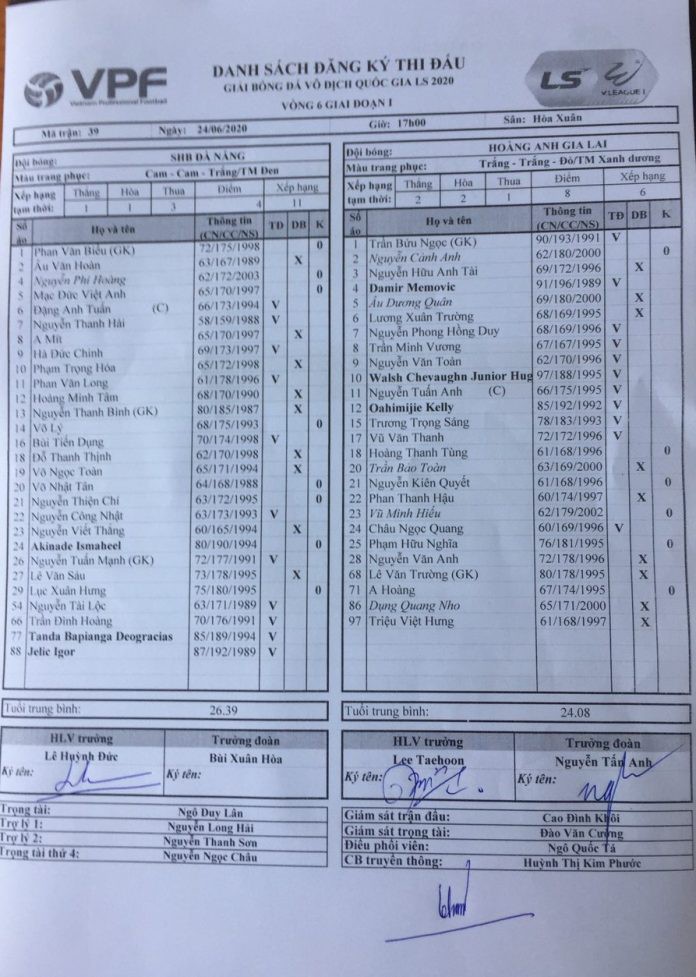 VPF
Vietnam Professional Football
DANH SÁCH ĐĂNG KÝ THI ĐẤU
GIẢI BÓNG ĐÁ VÔ ĐỊCH QUỐC GIA LS 2020
VÒNG 6 GIAI ĐOẠN I
LS
V.LEAGUE 1
Mã trận: 39 Ngày: 24/06/2020 Giờ: 17h00 Sân: Hòa Xuân
Đội bóng: SHB ĐÀ NẴNG
Màu trang phục: Cam - Cam - Trắng/TM Đen
Xếp hạng tạm thời: Thắng Hòa Thua Điểm Xếp hạng
1 1 3 4 11
Số áo Họ và tên Thông tin (CN/CC/NS) TĐ DB K
1 Phan Văn Biểu (GK) 72/175/1998 0
2 Âu Văn Hoàn 63/167/1989 X
4 Nguyễn Phi Hoàng 62/172/2003 0
5 Mạc Đức Việt Anh 65/170/1997 0
6 Đặng Anh Tuấn (C) 66/173/1994 V
7 Nguyễn Thanh Hải 58/159/1988 V
8 A Mít 65/170/1997 X
9 Hà Đức Chinh 69/173/1997 V
10 Phạm Trọng Hóa 65/172/1998 X
11 Phan Văn Long 61/178/1996 V
12 Hoàng Minh Tâm 68/170/1990 X
13 Nguyễn Thanh Bình (GK) 80/185/1987 X
14 Võ Lý 68/175/1993 0
16 Bùi Tiến Dụng 70/174/1998 V
18 Đỗ Thanh Thịnh 62/170/1998 X
19 Võ Ngọc Toàn 65/171/1994 X
20 Võ Nhật Tân 64/168/1988 0
21 Nguyễn Thiện Chí 63/172/1995 0
22 Nguyễn Công Nhật 63/173/1993 V
23 Nguyễn Viết Thắng 60/165/1994 X
24 Akinade Ismaheel 80/190/1994 0
26 Nguyễn Tuấn Mạnh (GK) 72/177/1991 V
27 Lê Văn Sâu 73/178/1995 X
29 Lục Xuân Hưng 75/180/1995 0
54 Nguyễn Tài Lộc 63/171/1989 V
66 Trần Đình Hoàng 70/176/1991 V
77 Tanda Bapianga Deogracias 85/189/1994 V
88 Jelic Igor 87/192/1989 V
Tuổi trung bình: 26.39
HLV trưởng Trưởng đoàn
Lê Huỳnh Đức Bùi Xuân Hòa
Ký tên: Ký tên:
Trọng tài: Ngô Duy Lân
Trợ lý 1: Nguyễn Long Hải
Trợ lý 2: Nguyễn Thanh Sơn
Trọng tài thứ 4: Nguyễn Ngọc Châu
Đội bóng: HOÀNG ANH GIA LAI
Màu trang phục: Trắng - Trắng - Đỏ/TM Xanh dương
Xếp hạng tạm thời: Thắng Hòa Thua Điểm Xếp hạng
2 2 1 8 6
Số áo Họ và tên Thông tin (CN/CC/NS) TĐ DB K
1 Trần Bửu Ngọc (GK) 90/193/1991 V
2 Nguyễn Cảnh Anh 62/180/2000 0
3 Nguyễn Hữu Anh Tài 69/172/1996 X
4 Damir Memovic 91/196/1989 V
5 Âu Dương Quân 69/180/2000 X
6 Lương Xuân Trường 68/169/1995 X
7 Nguyễn Phong Hồng Duy 68/169/1996 V
8 Trần Minh Vương 67/167/1995 V
9 Nguyễn Văn Toàn 62/170/1996 V
10 Walsh Chevaughn Junior Hug 97/188/1995 V
11 Nguyễn Tuấn Anh (C) 66/175/1995 V
12 Oahimijie Kelly 85/192/1992 V
15 Trương Trọng Sáng 78/183/1993 V
17 Vũ Văn Thanh 72/172/1996 V
18 Hoàng Thanh Tùng 61/168/1996 0
20 Trần Bảo Toàn 63/169/2000 X
21 Nguyễn Kiên Quyết 61/168/1996 0
22 Phan Thanh Hậu 60/174/1997 X
23 Vũ Minh Hiếu 62/179/2002 0
24 Châu Ngọc Quang 60/169/1996 V
25 Phạm Hữu Nghĩa 76/181/1995 0
28 Nguyễn Văn Anh 72/178/1996 X
68 Lê Văn Trường (GK) 80/178/1995 X
71 A Hoàng 67/174/1995 0
86 Dụng Quang Nho 65/171/2000 X
97 Triệu Việt Hưng 61/168/1997 X
Tuổi trung bình: 24.08
HLV trưởng Trưởng đoàn
Lee Taehoon Nguyễn Tấn Anh
Ký tên: Ký tên:
Giám sát trận đấu: Cao Đình Khôi
Giám sát trọng tài: Đào Văn Cường
Điều phối viên: Ngô Quốc Tá
CB truyền thông: Huỳnh Thị Kim Phước